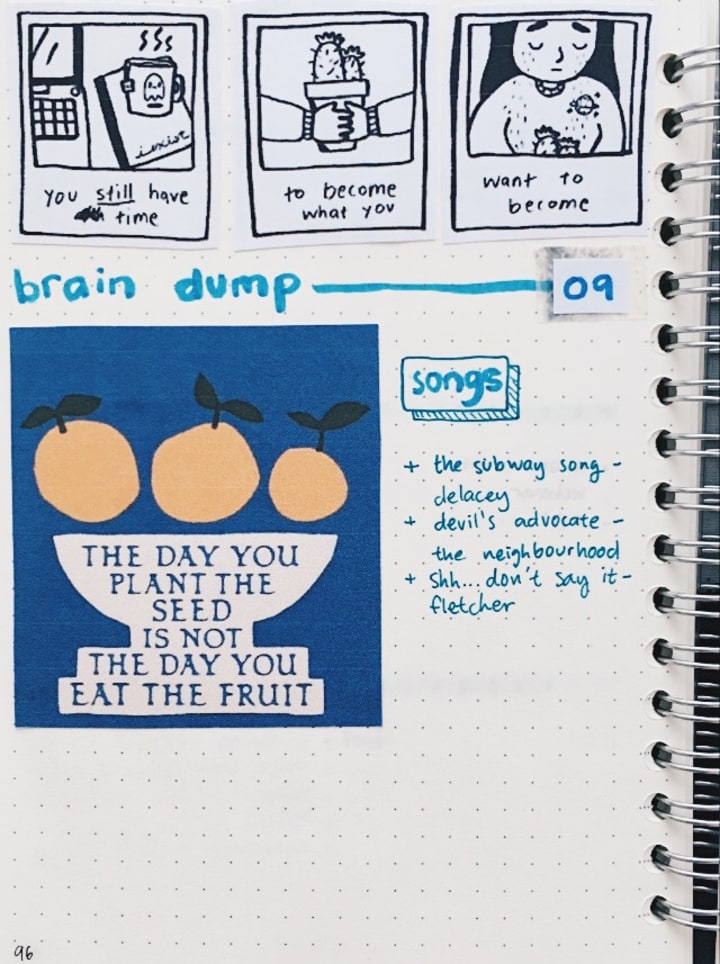 i exist
you still have
time
to become
what you
want to
become
brain dump
09
songs
+ the subway song -
delacey
+ devil's advocate -
the neighbourhood
+ shh... don't say it -
fletcher
THE DAY YOU
PLANT THE
SEED
IS NOT
THE DAY YOU
EAT THE FRUIT
96